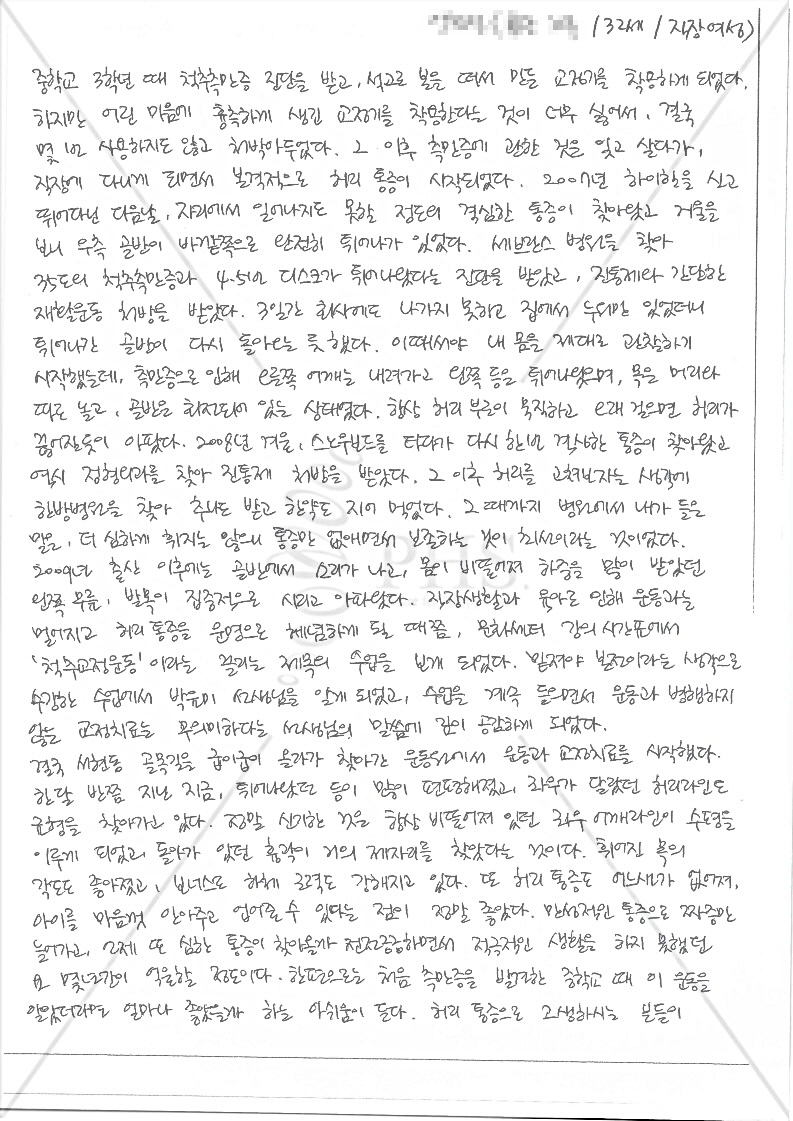 (32세 / 직장여성)
중학교 3학년 때 척추측만증 진단을 받고, 석고로 본을 떠서 만든 교정기를 착용하게 되었다.
하지만 어린 마음에 흉측하게 생긴 교정기를 착용한다는 것이 너무 싫어서, 결국
몇 번 사용하지도 않고 처박아두었다. 그 이후 측만증에 관한 것을 잊고 살다가,
직장에 다니게 되면서 본격적으로 허리 통증이 시작되었다. 2007년 하이힐을 신고
뛰어다닌 다음날, 자리에서 일어나지도 못할 정도의 격심한 통증이 찾아왔고 거울을
보니 우측 골반이 바깥쪽으로 완전히 튀어나가 있었다. 세브란스 병원을 찾아
35도의 척추측만증과 4.5번 디스크가 튀어나왔다는 진단을 받았고, 진통제와 간단한
재활운동 처방을 받았다. 3일간 회사에도 나가지 못하고 집에서 누워만 있었더니
튀어나간 골반이 다시 돌아오는 듯 했다. 이때서야 내 몸을 제대로 관찰하기
시작했는데, 측만증으로 인해 오른쪽 어깨는 내려가고 왼쪽 등은 튀어나왔으며, 목은 머리와
따로 놀고, 골반은 회전되어 있는 상태였다. 항상 허리 부근이 묵직하고 오래 걸으면 허리가
끊어질듯이 아팠다. 2008년 겨울, 스노우보드를 타다가 다시 한번 격심한 통증이 찾아왔고
역시 정형외과를 찾아 진통제 처방을 받았다. 그 이후 허리를 고쳐보자는 생각에
한방병원을 찾아 추나도 받고 한약도 지어 먹었다. 그 때까지 병원에서 내가 들은
말은, 더 심하게 휘지는 않으니 통증만 없애면서 보존하는 것이 최선이라는 것이었다.
2009년 출산 이후에는 골반에서 소리가 나고, 몸이 비뚤어져 하중을 많이 받았던
왼쪽 무릎, 발목이 집중적으로 시리고 아파왔다. 직장생활과 육아로 인해 운동과는
멀어지고 허리 통증을 운명으로 체념하게 될 때쯤, 문화센터 강의 시간표에서
'척추교정운동' 이라는 끌리는 제목의 수업을 보게 되었다. '밑져야 본전'이라는 생각으로
수강한 수업에서 박유미 선생님을 알게 되었고, 수업을 계속 들으면서 운동과 병행하지
않는 교정치료는 무의미하다는 선생님의 말씀에 깊이 공감하게 되었다.
결국 서현동 골목길을 굽이굽이 올라가 찾아간 운동원에서 운동과 교정치료를 시작했다.
한달 반쯤 지난 지금, 튀어나왔던 등이 많이 편평해졌고, 좌우가 달랐던 허리라인도
균형을 찾아가고 있다. 정말 신기한 것은 항상 비뚤어져 있던 좌우 어깨라인이 수평을
이루게 되었고, 돌아가 있던 흉곽이 거의 제자리를 찾았다는 것이다. 휘어진 목의
각도도 좋아졌고, 보너스로 하체 근력도 강해지고 있다. 또 허리 통증도 어느새가 없어져,
아이를 마음껏 안아주고 업어줄 수 있다는 점이 정말 좋았다. 만성적인 통증으로 짜증만
늘어가고, 언제 또 심한 통증이 찾아올까 전전긍긍하면서 적극적인 생활을 하지 못했던
요 몇년간이 억울할 정도이다. 한편으로는 처음 측만증을 발견한 중학교 때 이 운동을
알았더라면 얼마나 좋았을까 하는 아쉬움이 든다. 허리 통증으로 고생하시는 분들이
PUS